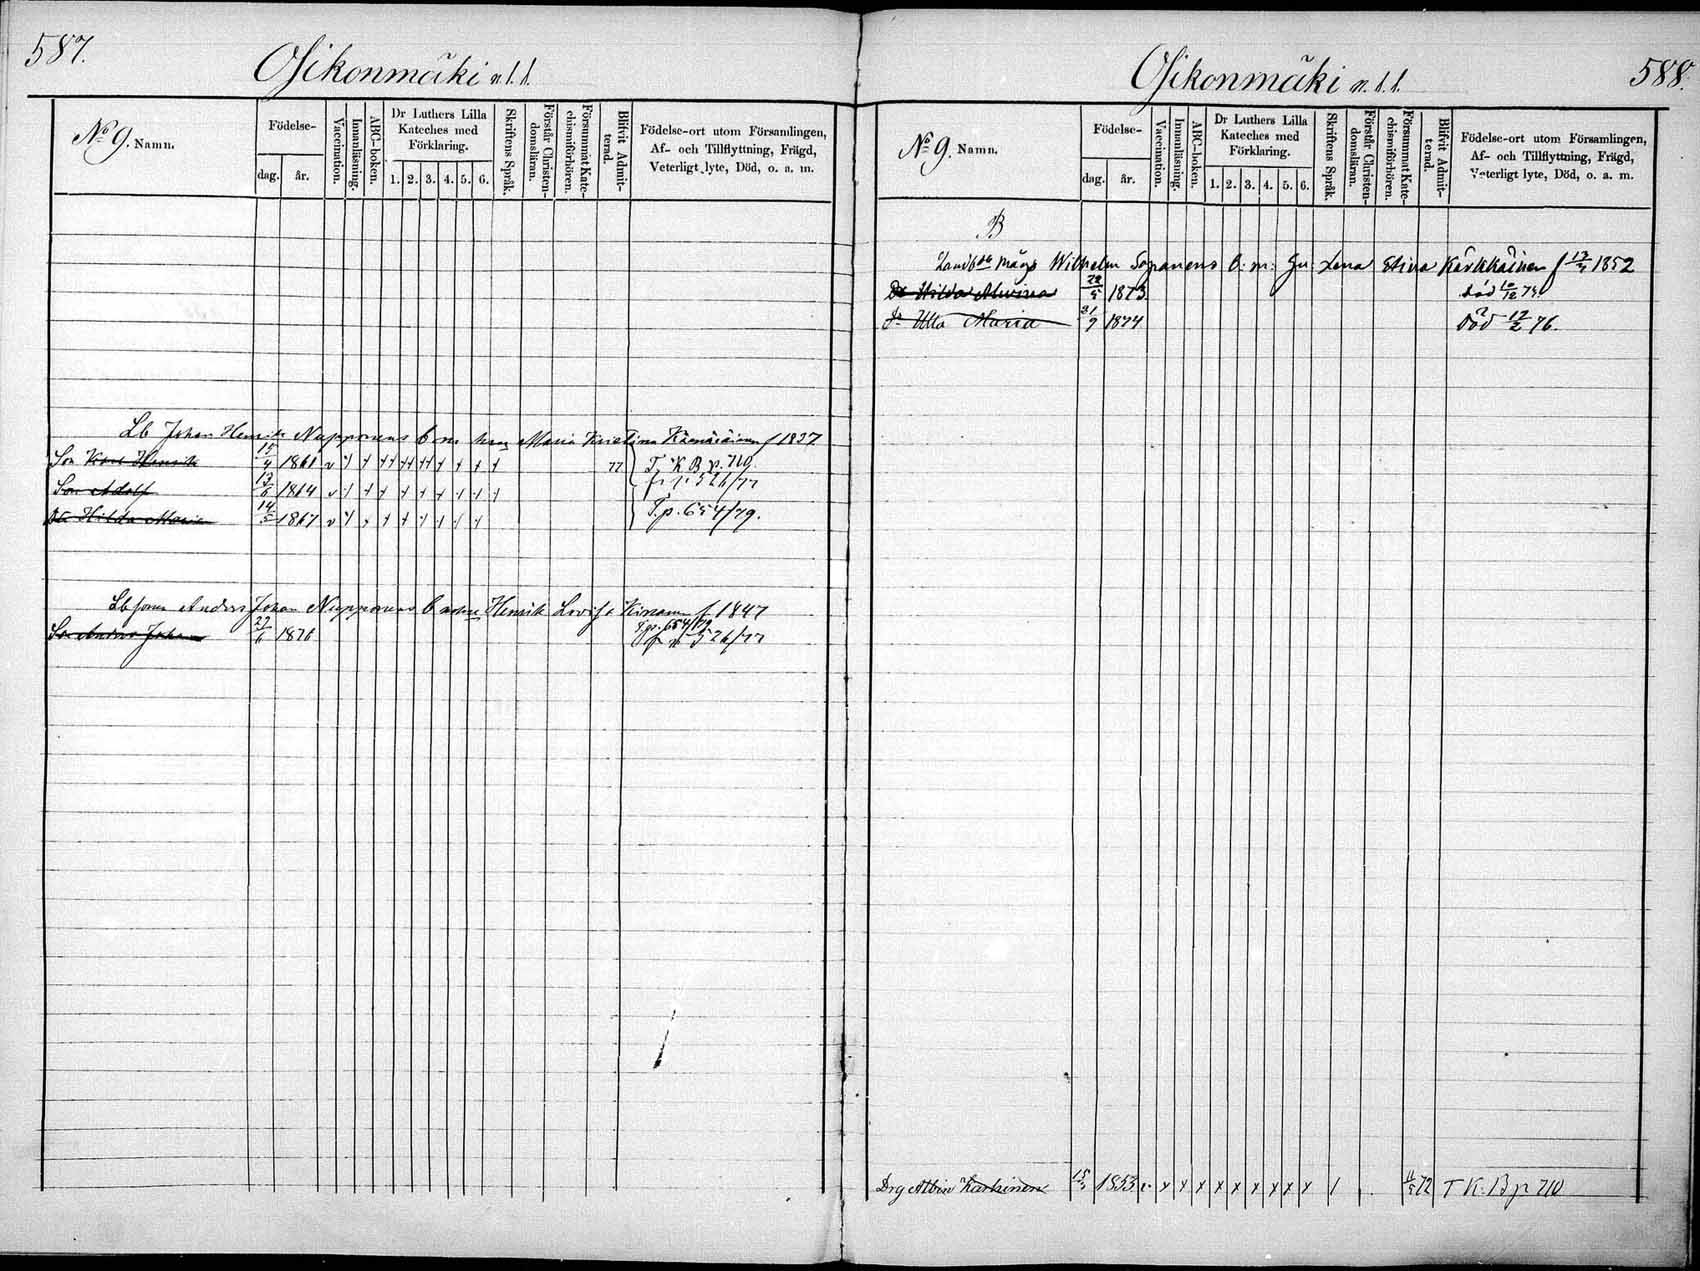 587.
Osikonmäki n. l. l.
No 9. Namn.
Födelse-
dag. år.
Vaccination.
Innanläsning.
ABC-boken.
Dr Luthers Lilla
Kateches med
Förklaring.
1. 2. 3. 4. 5. 6.
Skriftens Språk.
Förstår Christen-
domsläran.
Försummat Kate-
chismiförhören.
Blifvit Admit-
terad.
Födelse-ort utom Församlingen,
Af- och Tillflyttning, Frägd,
Veterligt lyte, Död, o. a. m.
Lb Johan Henrik Nupponens b m Maria f 1837
Son Karl Henrik 15/4 1861 v 77 T. K B p. 710.
Son Adolf 13/6 1864 v fr p. 526/77
Dr Hilda Maria 14/5 1867 v T. p. 654/79.
Lb sonen Anders Johan Nupponens b Henrik f 1847
T. p. 654/79
Son Anders Johan 27/6 1876 fr p 526/77
Osikonmäki n. l. l.
588.
No 9. Namn.
Födelse-
dag. år.
Vaccination.
Innanläsning.
ABC-boken.
Dr Luthers Lilla
Kateches med
Förklaring.
1. 2. 3. 4. 5. 6.
Skriftens Språk.
Förstår Christen-
domsläran.
Försummat Kate-
chismiförhören.
Blifvit Admit-
terad.
Födelse-ort utom Församlingen,
Af- och Tillflyttning, Frägd,
Veterligt lyte, Död, o. a. m.
B
Landb Wilhelm Sopanens b. m. Lena Stina Kärkkäinen f 1852
Dr Hilda Alwina 22/5 1873 död 10/12 75.
Dr Ulla Maria 21/9 1874 död 12/2 76.
Drg Albin Karkinen 15/3 1853 v x x x x x x x x x 1 11/5 72 T K. B p 710